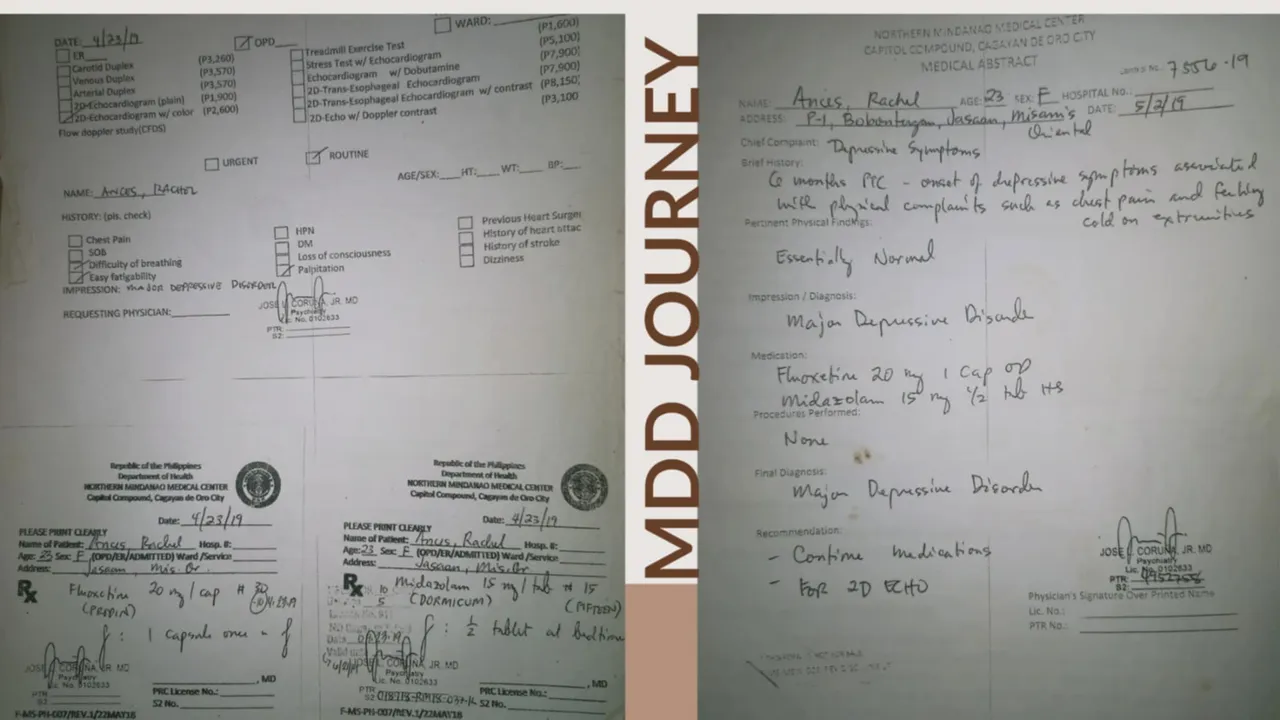 WARD:
(P1,600)
DATE: 4/23/19
OPD
Treadmill Exercise Test
(P5,100)
ER
Stress Test w/ Echocardiogram
(P7,900)
Carotid Duplex (P3,260)
Echocardiogram w/ Dobutamine
(P7,900)
Venous Duplex (P3,570)
2D-Trans-Esophageal Echocardiogram
(P8,150)
Arterial Duplex (P3,570)
2D-Trans-Esophageal Echocardiogram w/ contrast
(P3,100
2D-Echocardiogram (plain) (P1,900)
2D-Echo w/ Doppler contrast
2D-Echocardiogram w/ color (P2,600)
Flow doppler study(CFDS)
URGENT
ROUTINE
AGE/SEX: HT: WT: BP:
NAME: ANCES, RACHEL
HISTORY: (pls. check)
Chest Pain
SOB
Difficulty of breathing
Easy fatigability
HPN
DM
Loss of consciousness
Palpitation
Previous Heart Surger
History of heart attac
History of stroke
Dizziness
IMPRESSION: MAJOR DEPRESSIVE DISORDER
REQUESTING PHYSICIAN:
JOSE L. CORUÑA, JR. MD
Psychiatry
Lic. No. 0102633
PTR:
S2:
Republic of the Philippines
Department of Health
NORTHERN MINDANAO MEDICAL CENTER
Capitol Compound, Cagayan de Oro City
Date: 4/23/19
PLEASE PRINT CLEARLY
Name of Patient: Ances, Rachel Hosp. #:
Age: 23 Sex: F (OPD/ER/ADMITTED) Ward /Service
Address: Jasaan, Mis. Or.
Rx
Fluoxetine 20 mg / cap # 30
(PRODIN)
: 1 capsule once a
JOSE L. CORUÑA, JR. MD
Psychiatry
Lic. No. 0102633
PTR:
S2:
, MD
PRC License No.:
S2 No.:
F-MS-PH-007/REV.1/22MAY18
Republic of the Philippines
Department of Health
NORTHERN MINDANAO MEDICAL CENTER
Capitol Compound, Cagayan de Oro City
Date: 4/23/19
PLEASE PRINT CLEARLY
Name of Patient: Ances, Rachel Hosp. #:
Age: 23 Sex: F (OPD/ER/ADMITTED) Ward /Service
Address: Jasaan, Mis. Or
Rx
Midazolam 15 mg / tab # 15
(DORMICUM) (FIFTEEN)
: ½ tablet at bedtime
JOSE L. CORUÑA, JR. MD
Psychiatry
Lic. No. 0102633
PTR:
S2:
, MD
PRC License No.:
S2 No.:
F-MS-PH-007/REV.1/22MAY18
MDD JOURNEY
NORTHERN MINDANAO MEDICAL CENTER
CAPITOL COMPOUND, CAGAYAN DE ORO CITY
MEDICAL ABSTRACT
7556-19
NAME: Ances, Rachel AGE: 23 SEX: F HOSPITAL NO.:
ADDRESS: P-1, Bobontugan, Jasaan, Misamis DATE: 5/2/19
Oriental
Chief Complaint: Depressive Symptoms
Brief History:
6 months PTC - onset of depressive symptoms associated
with physical complaints such as chest pain and feeling
cold on extremities
Pertinent Physical Findings:
Essentially Normal
Impression / Diagnosis:
Major Depressive Disorder
Medication:
Fluoxetine 20 mg 1 cap OD
Midazolam 15 mg ½ tab HS
Procedures Performed:
None
Final Diagnosis:
Major Depressive Disorder
Recommendation:
- Continue medications
- FOR 2D ECHO
JOSE L. CORUÑA, JR. MD
Psychiatry
Lic. No. 0102633
PTR:
S2:
Physician's Signature Over Printed Name
Lic. No.:
PTR No.: